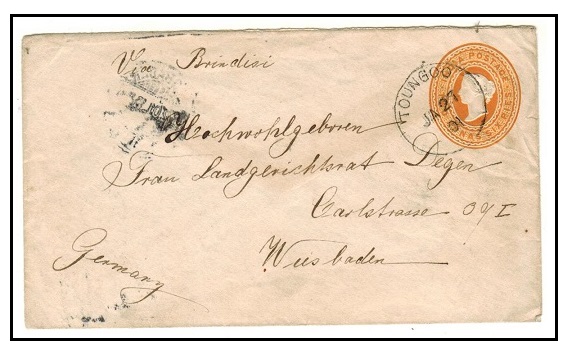 Via Brindisi
POSTAGE
TOUNGOO
JA 27
Hochwohlgeboren
Frau Landgerichtsrat Degen
Carlstrasse
Wiesbaden
Germany